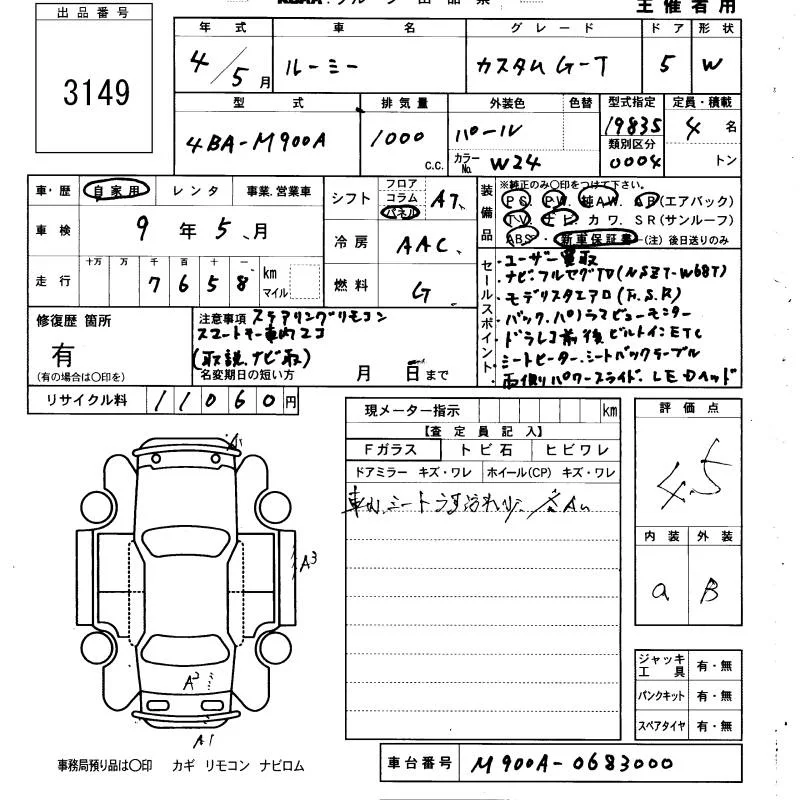 主催者用
出品番号
3149
年式 車名 グレード ドア 形状
4/5月 ルーミー カスタムG-T 5 W
型式 排気量 外装色 色替 型式指定 定員・積載
4BA-M900A 1000 c.c. パール 19835 4名
カラーNo. W24 類別区分 0004 トン
車・歴 自家用 レンタ 事業.営業車
車検 9年5月
走行 十万 万 千 百 十 一 km マイル
7658
シフト フロア コラム パネル AT
冷房 AAC
燃料 G
装備品 ※純正のみ〇印をつけて下さい。
PS. PW. 純AW. AB(エアバック)
TV. ナビ カワ. SR(サンルーフ)
ABS・新車保証書―(注)後日送りのみ
セールスポイント
・ユーザー買取
・ナビ・フルセグTV(NSZT-W68T)
・モデリスタエアロ(F.S.R)
・バック.パノラマビューモニター
・ドラレコ前後ビルトインETC
・シートヒーター.シートバックテーブル
・両側パワースライド、LEDヘッド
修復歴 箇所
有
(有の場合は〇印を)
注意事項 ステアリングリモコン
スマートキー車内2コ
(取説、ナビ取)
名変期日の短い方 月 日まで
リサイクル料 11060円
現メーター指示 km
【査定員記入】
Fガラス トビ石 ヒビワレ
ドアミラー キズ・ワレ ホイール(CP) キズ・ワレ
車内、シートうす汚れ
評価点
4.5
内装 外装
a B
A1
A3
A3
A1
ジャッキ工具 有・無
パンクキット 有・無
スペアタイヤ 有・無
事務局預り品は〇印 カギ リモコン ナビロム
車台番号 M900A-0683000